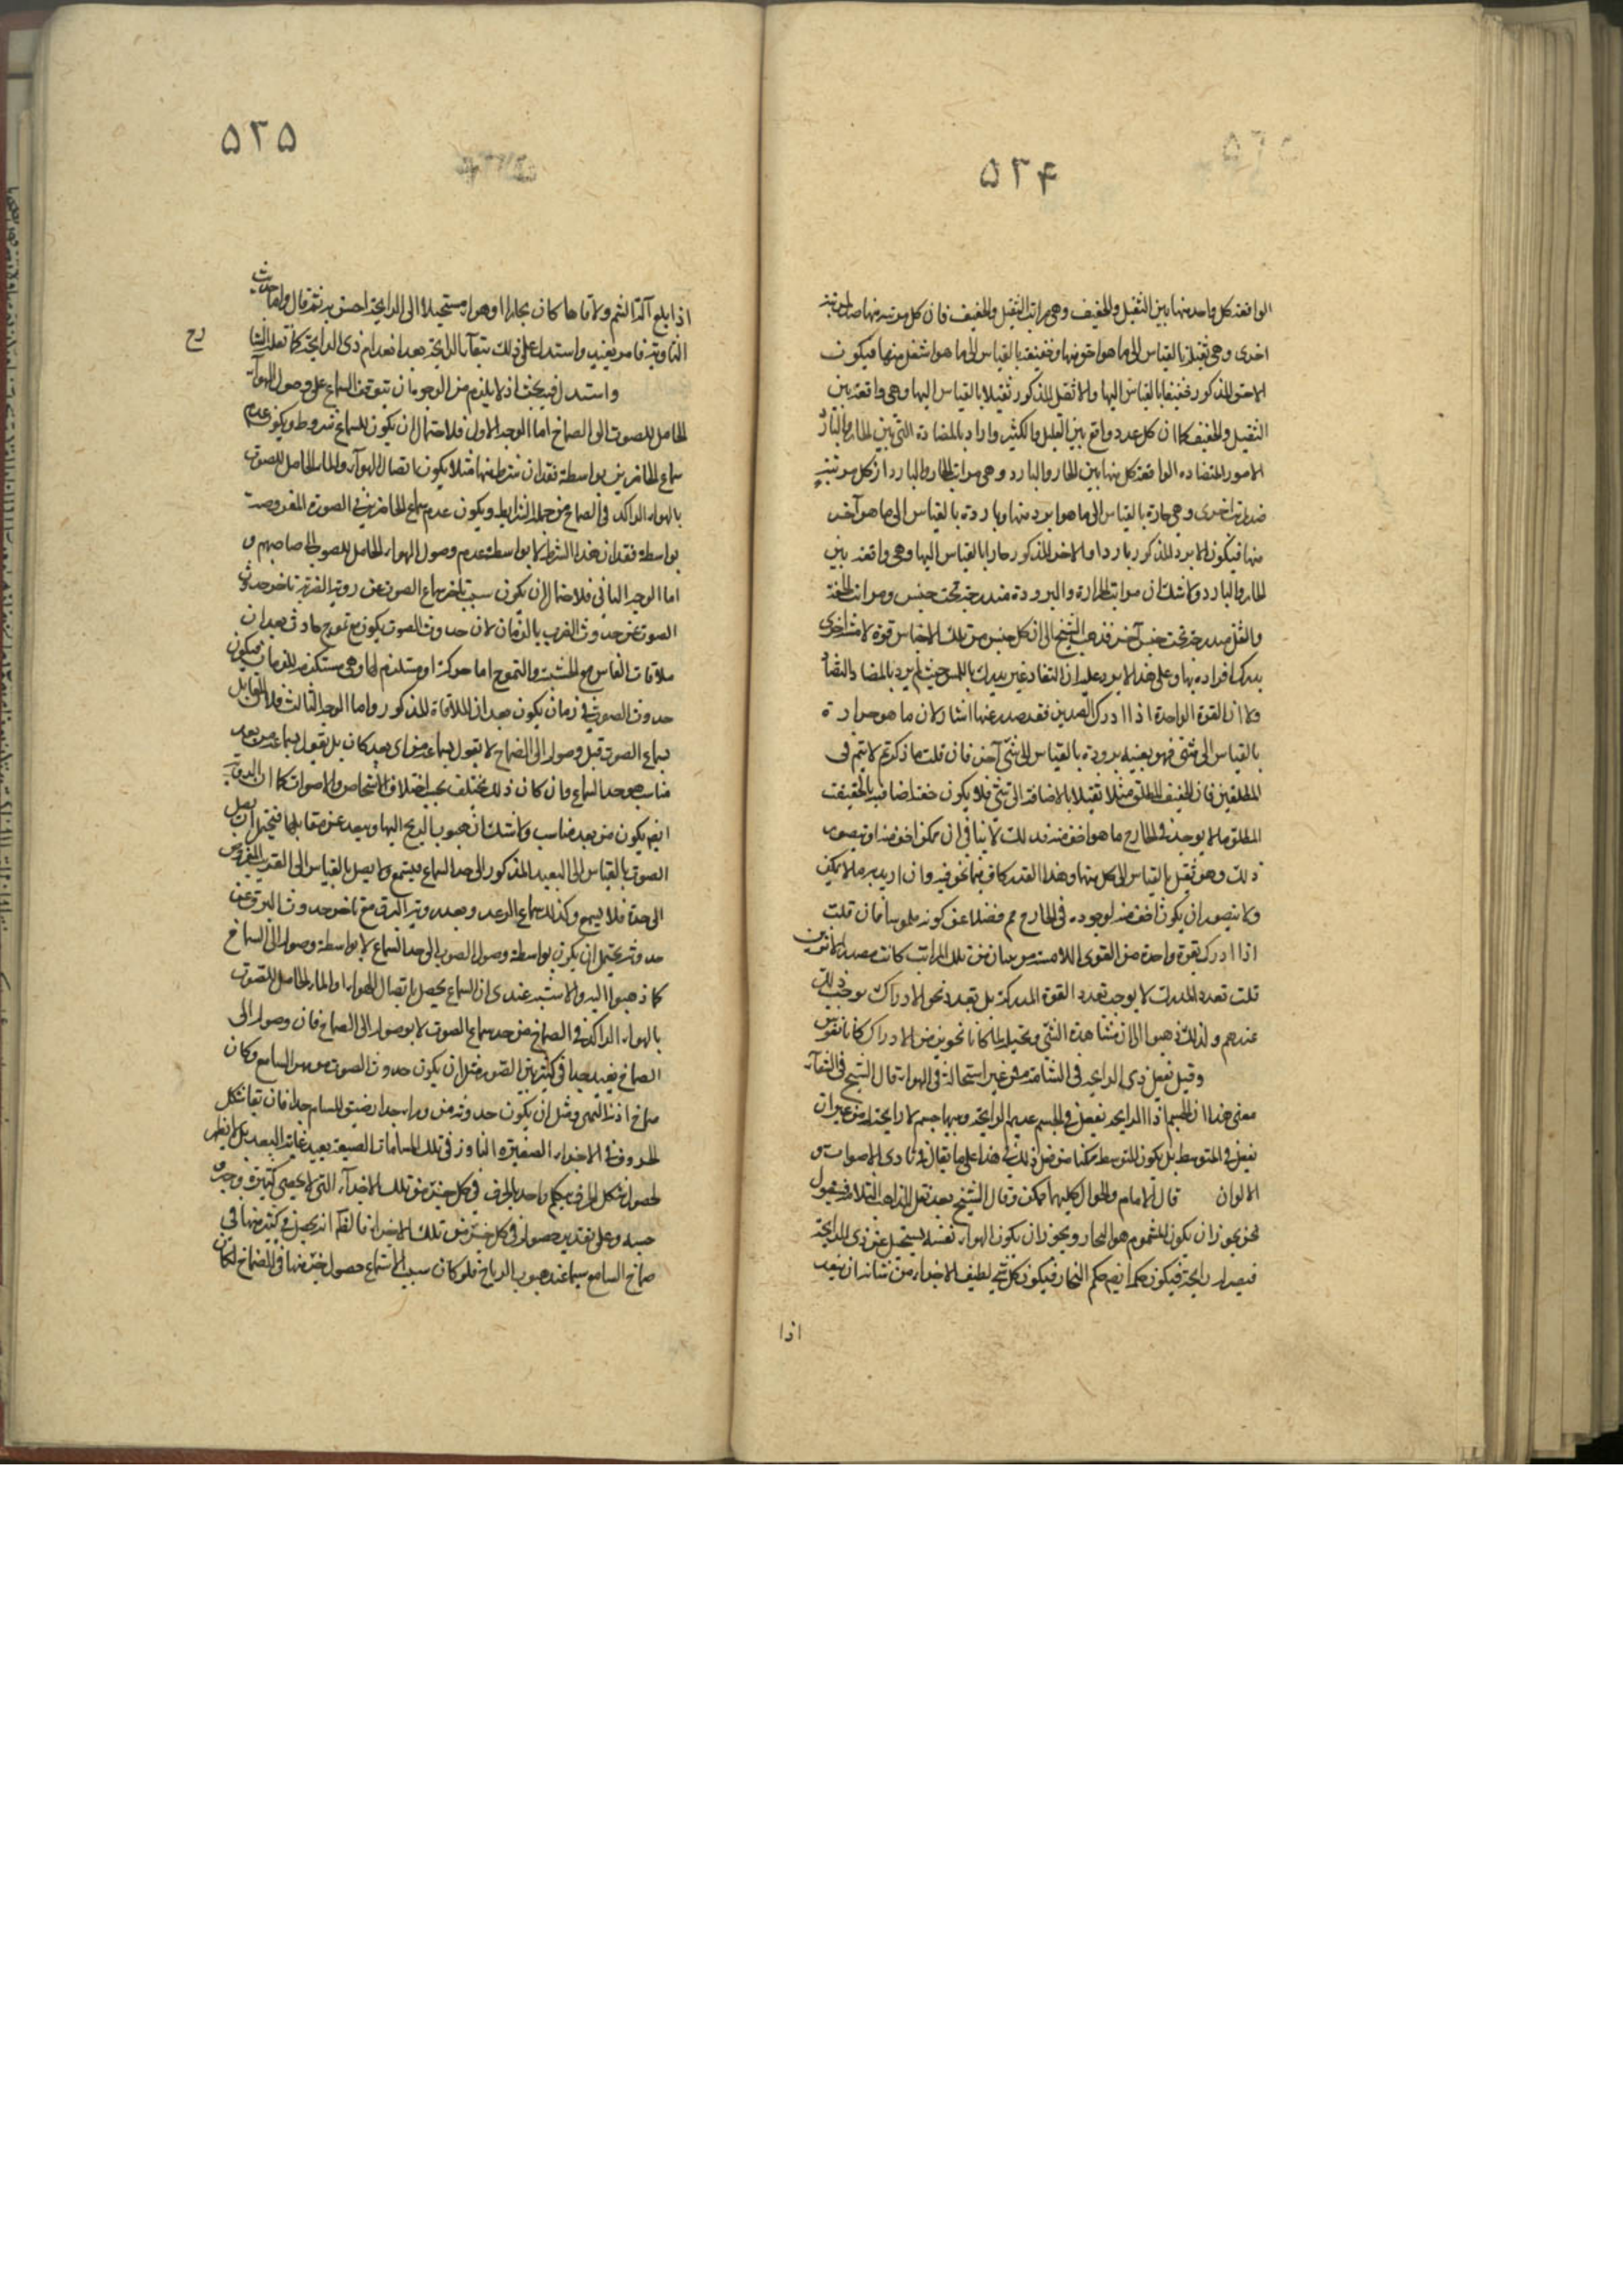 ۵۲۴
الواقعة كل واحد منها بين الثقيل والخفيف وهى مراتب الثقيل والخفيف فان كل مرتبة منها ضد لمرتبة
اخرى وهى ثقيلة بالقياس الى ما هو اخف منها وخفيفة بالقياس الى ما هو اثقل منها فيكون
الاخف المذكور خفيفا بالقياس اليها والاثقل المذكور ثقيلا بالقياس اليها وهى واقعة بين
الثقيل والخفيف كما ان كل عدد واقع بين القليل والكثير واراد بالمضادة التى بين الحار والبارد
الامور المتضاده الواقعة كل منها بين الحار والبارد وهى مراتب الحار والبارد اذ كل مرتبة
ضد لمرتبة اخرى وهى حارة بالقياس الى ما هو ابرد منها وباردة بالقياس الى ما هو آخر
منها فيكون الابرد المذكور باردا والاخر المذكور حارا بالقياس اليها وهى واقعة بين
الحار والبارد ولا شك ان مراتب الحرارة والبرودة مندرجة تحت جنس ومراتب الخفة
والثقل مندرجة تحت جنس آخر فذهب الشيخ الى ان كل جنس من تلك الاجناس قوة لامسة اخرى
يدرك افراده بها وعلى هذا لا يرد عليه ان التضاد غير مدرك باللمس حيث لم يرد بالمضاد التضاد
ولا ان القوة الواحدة اذا ادرك الضدين فقد صدر عنها اثنان لان ما هو حرارة
بالقياس الى شئ فهو بعينه برودة بالقياس الى شئ آخر فان قلت ما ذكرتم لا يتم فى
المطلقين فان الخفيف المطلق مثلا ثقيلا بالاضافة الى شئ فلا يكون خفة اضافية بل الخفيف
المطلق ما لا يوجد فى الخارج ما هو اخف منه فذلك لا ينافى ان يمكن اخف منه او يتصور
ذلك وهو ثقيل بالقياس الى كل منهما وهذا القدر كاف فيما نحن فيه وان اريد به ما لا يمكن
ولا يتصور ان يكون اخف منه لوجوده فى الخارج مم فضلا عن كونه ملموسا فان قلت
اذا ادرك بقوة واحدة من القوى اللامسة مرتبتان من تلك المراتب كانت مصدر الاثنين
قلت تعدد المدرك لا يوجب تعدد القوة المدركة بل تعدد نحو الادراك يوجب ذلك
عندهم ولذلك ذهبوا الى ان مشاهدة الشئ وتخيله لما كانا نحوين من الادراك كانا بقوتين
وقيل بفعل ذى الرايحه فى الشامة من غير استحالة فى الهواء قال الشيخ فى الشفاء
معنى هذا ان الجسم ذا الرايحه يفعل فى الجسم عديم الرايحة وبينهما جسم لا رايحة له من غير ان
يفعل فى المتوسط بل يكون المتوسط ممكنا من فعل ذلك فى هذا على ما يقال فى تادى الاصوات و
الالوان قال الامام والحق ان كليهما ممكن وقال الشيخ بعد نقل المذاهب الثلاثة فنقول
نحن يجوز ان يكون المشموم هو البخار ويجوز ان يكون الهواء نفسه يستحيل عن ذى الرايحة
فيصير له رايحة فيكون حكمه ايضا حكم البخار فيكون كل شئ لطيف الاجزاء من شانه ان ينفد
اذا
۵۲۵
اذا بلغ آلة الشم ولاقاها كان بخارا او هواء مستحيلا الى الرايحة احس به ثم قال واما حديث
التادية فامر بعيد واستدل على ذلك ببقاء الرايحة بعد انعدام ذى الرايحة كما نقله الشا
رح
واستدل فيه بحث اذ لا يلزم من الوجوه ان يتوقف السماع على وصول الهواء
الحامل للصوت الى الصماخ اما الوجه الاول فلاحتمال ان يكون للسماع شروط ويكون عدم
سماع الحاضرين بواسطة فقدان شرط منها مثلا يكون اتصال الهواء والماء الحامل للصوت
بالهواء الراكد فى الصماخ من جملة الشرايط ويكون عدم سماع الحاضرين فى الصورة المفروضة
بواسطة فقدان هذا الشرط لا بواسطة عدم وصول الهواء الحامل للصوت الى صماخهم و
اما الوجه الثانى فلاحتمال ان يكون سبب تاخر سماع الصوت عن روية الضربة تاخر حدوث
الصوت عن حدوث الضرب بالزمان لان حدوث الصوت يكون مع تموج حادث بعد ان
ملاقات الفاس مع الخشبة والتموج اما حركة او مستلزم لها وهى مستلزم للزمان فيكون
حدوث الصوت فى زمان يكون بعد ان الملاقاة المذكور واما الوجه الثالث فلان القايل
بسماع الصوت قبل وصوله الى الصماخ لا يقول بسماعه من اى بعد كان بل يقول بسماعه من بعد
مناسب هو حد السماع وان كان ذلك يختلف بحسب اختلاف الاشخاص والاصوات كما ان الروية
ايضا يكون من بعد مناسب ولا شك ان هبوب الريح اليها ويبعد عن مقابلها فيتخيل ان يصل
الصوت بالقياس الى البعيد المذكور الى حد السماع فيستمع ولا يصل بالقياس الى القريب المفروض
الى حده فلا يسمع وكذا لك سماع الرعد وبعد روية البرق مع تاخر حدوث البرق عن
حدوثه يحتمل ان يكون بواسطة وصول الصوت الى حد السماع لا بواسطة وصوله الى السماخ
كما ذهبوا اليه والاشبه عندى ان السماع يحصل باتصال الهواء او الماء الحامل للصوت
بالهواء الراكد فى الصماخ من حد سماع الصوت لا بوصوله الى الصماخ فان وصوله الى
الصماخ بعيد جدا فى كثير من الصور مثل ان يكون حدوث الصوت من يسار السامع وكان
صماخ اذنه اليمنى ومثل ان يكون حدوثه من وراء جدار ضيق المسام جدا فان بقا شكل
الحروف فى الاجزاء الصغيرة النافذ فى تلك المسامات الضيقة بعيد غاية البعد بل لا يظهر
لحصول شكل الحرف بحكم واحد بالحرف فى كل جزء من تلك الاجزاء التى لا يحصى كثيرة وجه
حسبه وعلى تقدير حصوله فى كل جزء من تلك الاجزاء فالظ انه يحصل فى كثير منها فى
صماخ السامع سيما عند هبوب الرياح فلو كان سبب الاستماع حصول جزء منها فى الصماخ لكان